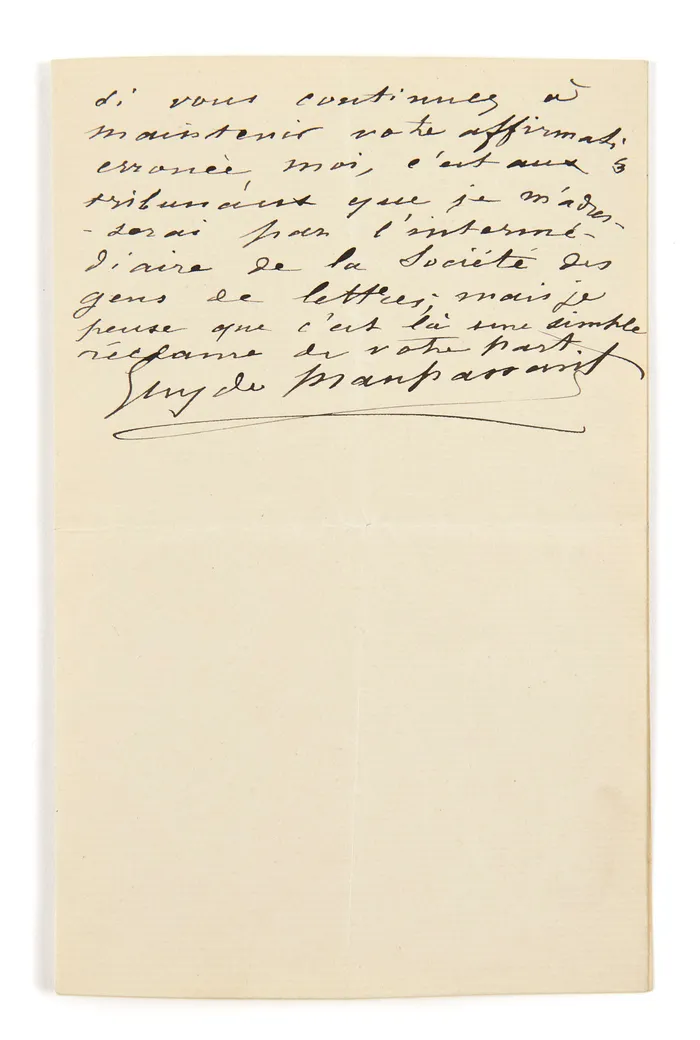 si vous continuez à
maintenir votre affirmation
erronée, moi, c'est aux
tribunaux que je m'adres-
-serai par l'intermé-
diaire de la Société des
gens de lettres; mais je
pense que c'est là une simple
réclame de votre part
Guy de Maupassant